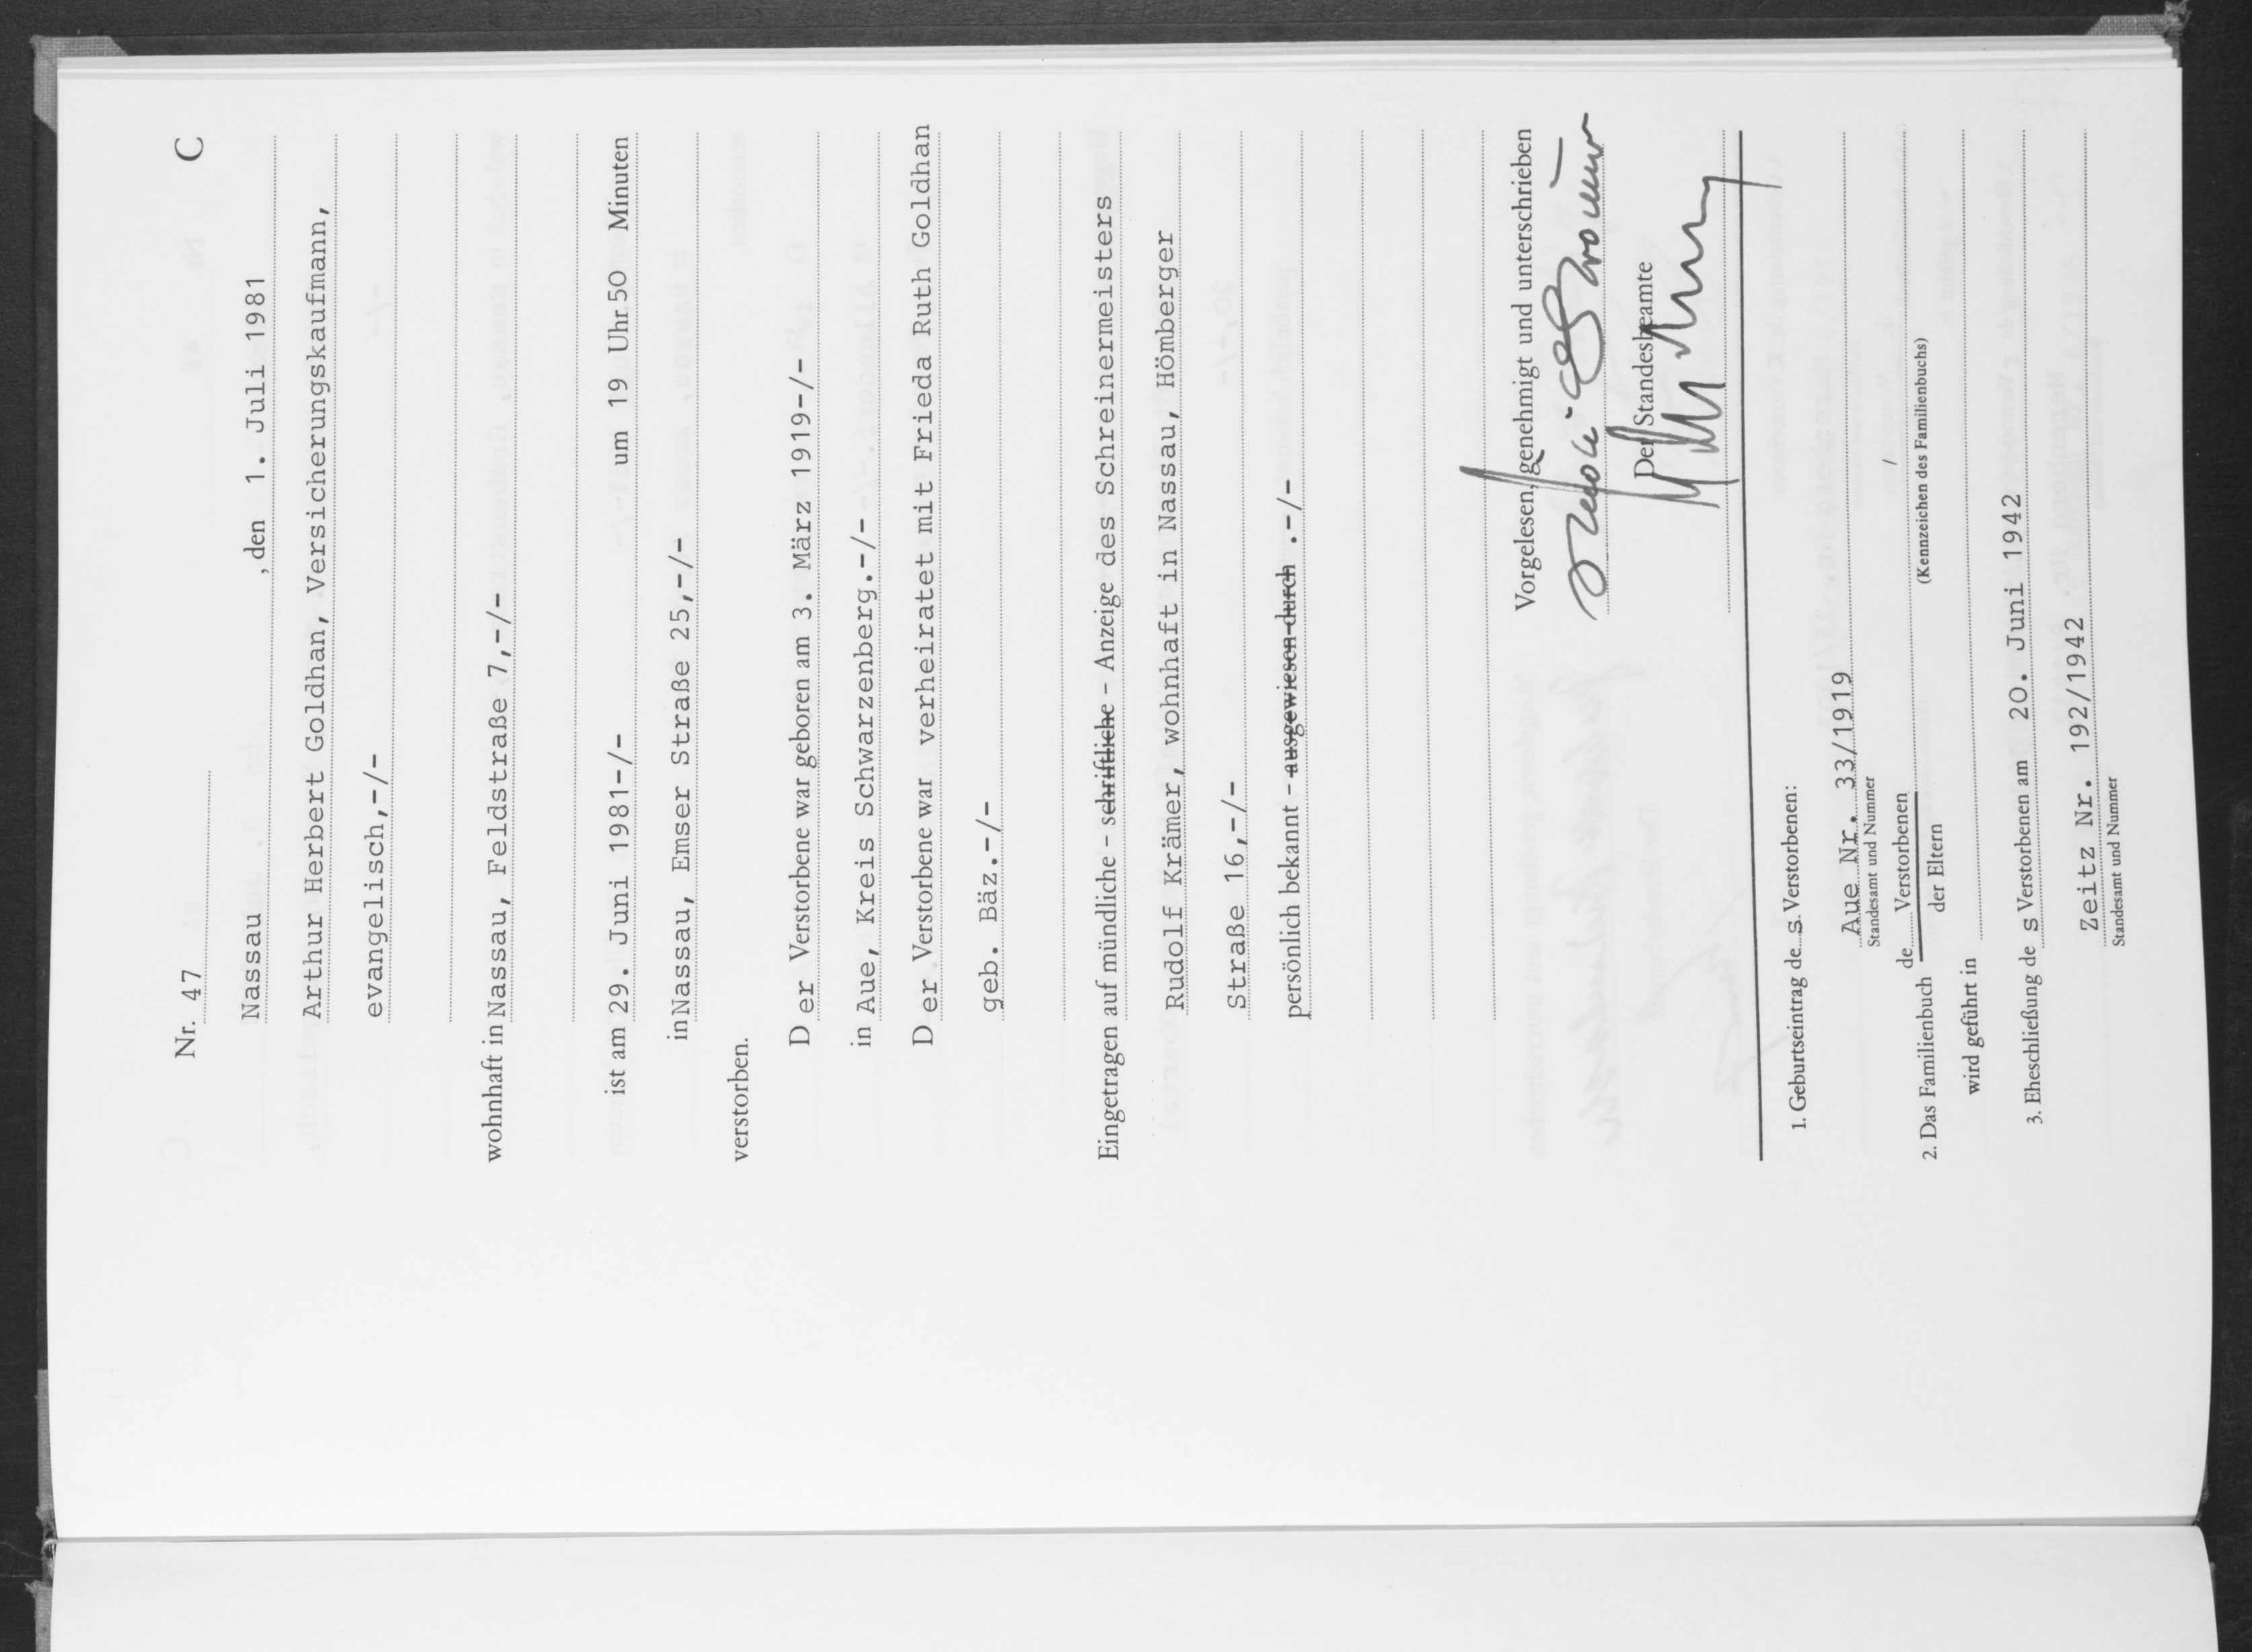 Nr. 47 C
Nassau , den 1. Juli 1981
Arthur Herbert Goldhan, Versicherungskaufmann,
evangelisch,-/-
wohnhaft in Nassau, Feldstraße 7,-/-
ist am 29. Juni 1981-/- um 19 Uhr 50 Minuten
in Nassau, Emser Straße 25,-/-
verstorben.
D er Verstorbene war geboren am 3. März 1919-/-
in Aue, Kreis Schwarzenberg.-/-
D er Verstorbene war verheiratet mit Frieda Ruth Goldhan
geb. Bäz.-/-
Eingetragen auf mündliche – schriftliche – Anzeige des Schreinermeisters
Rudolf Krämer, wohnhaft in Nassau, Hömberger
Straße 16,-/-
persönlich bekannt – ausgewiesen durch .-/-
Vorgelesen, genehmigt und unterschrieben
Der Standesbeamte
1. Geburtseintrag de s Verstorbenen:
Aue Nr. 33/1919
Standesamt und Nummer
2. Das Familienbuch de Verstorbenen /
der Eltern (Kennzeichen des Familienbuchs)
wird geführt in
3. Eheschließung de s Verstorbenen am 20. Juni 1942
Zeitz Nr. 192/1942
Standesamt und Nummer